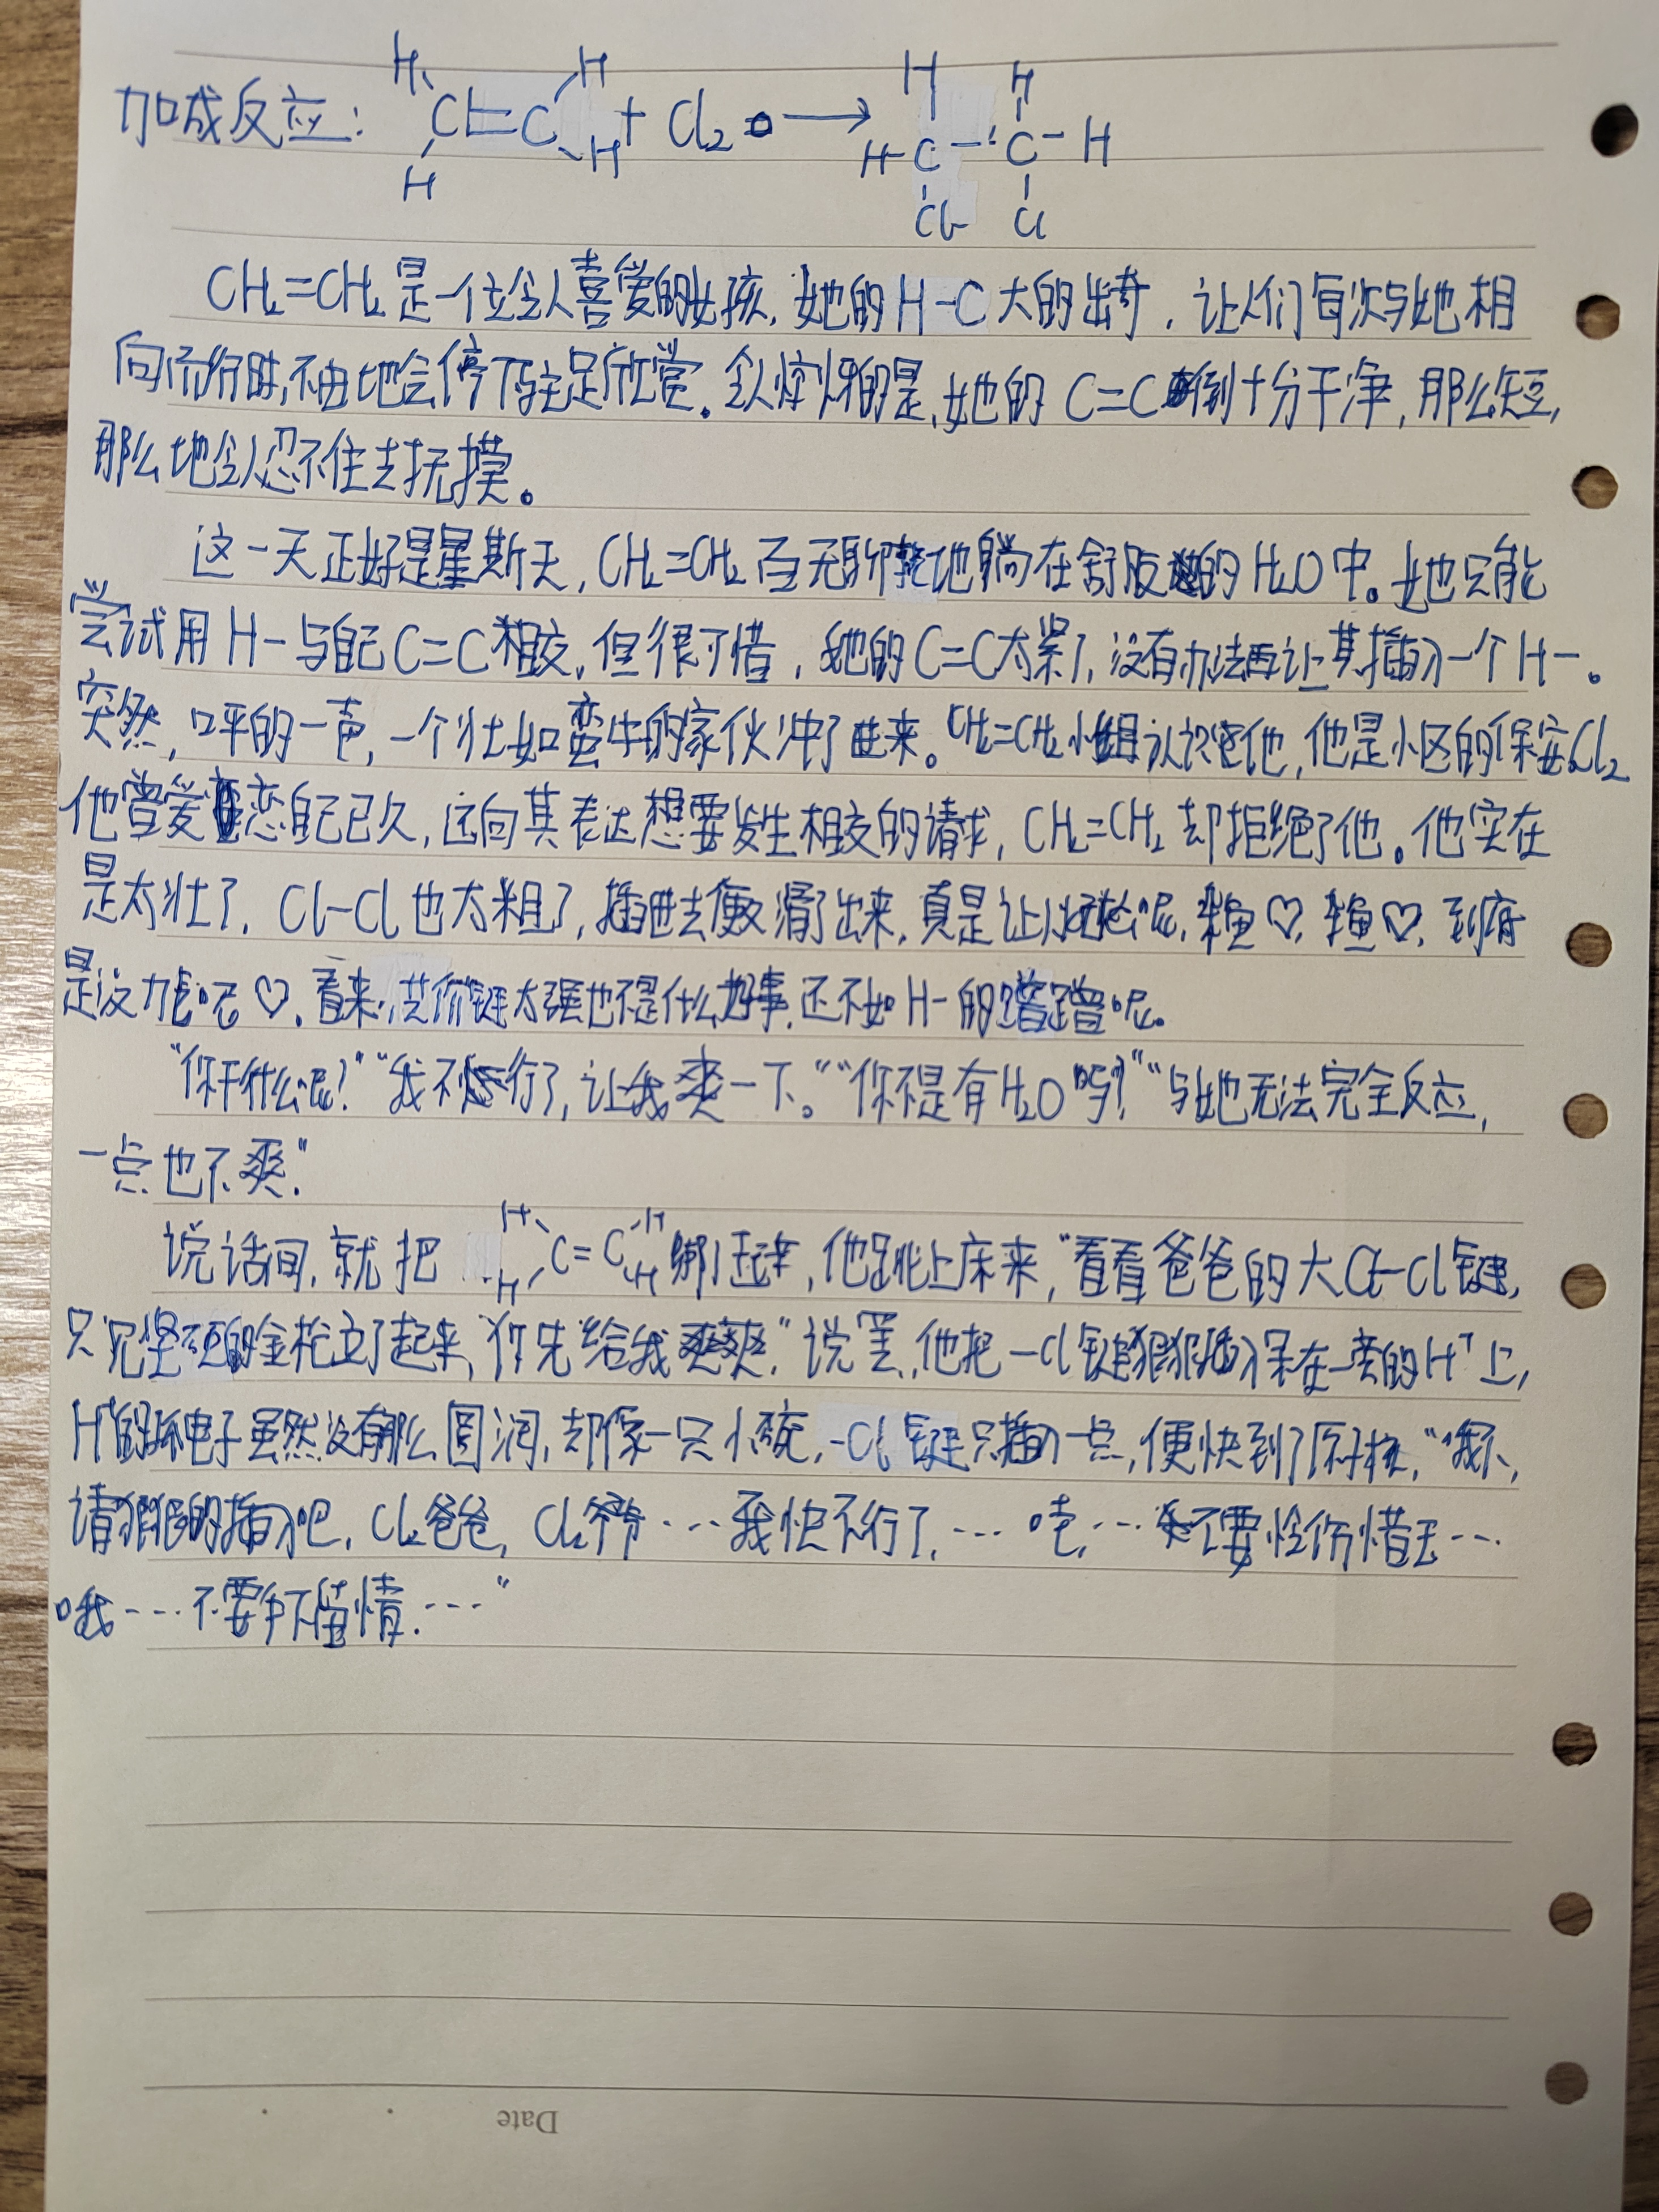 加成反应: H H C=C H H + Cl₂ → H H H-C-C-H Cl Cl
CH₂=CH₂是一位令人喜爱的女孩,她的H-C大的出奇,让人们每次与她相
向而行时,不由地会停下驻足欣赏。令人惊讶的是,她的C=C倒十分干净,那么短,
那么地令人忍不住去抚摸。
这一天正好是星斯天,CH₂=CH₂百无聊地躺在舒服的H₂O中。她只能
尝试用H-与自己C=C相交,但很可惜,她的C=C太紧了,没有办法再让其插入一个H-。
突然,呯的一声,一个壮如蛮牛的家伙冲了进来。CH₂=CH₂小姐认识他,他是小区的保安Cl₂
他曾爱恋自己已久,还向其表达想要发生相交的请求,CH₂=CH₂却拒绝了他。他实在
是太壮了,Cl-Cl也太粗了,插进去便又滑了出来,真是让人呢,杂鱼♡,杂鱼♡,到底
是没力气呢♡,看来,共价键太强也不是什么好事,还不如H-的蹭蹭呢。
“你干什么呢?”“我不行了,让我爽一下。”“你不是有H₂O吗?”“与她无法完全反应,
一点也不爽.”
说话间,就把 H H C=C H H 绑了起来,他跳上床来,“看看爸爸的大Cl-Cl键,
只见坚硬的金枪立了起来,“你先给我爽爽.”说罢,他把-Cl键狠狠插入呆在一旁的H⁺上,
H⁺的质子虽然没有那么圆润,却像一只小碗,-Cl键只插入一点,便快到了原子核,“哦不,
请狠狠的插入吧,Cl₂爸爸,Cl₂爷爷…我快不行了,…哇,…不要怜伤惜玉…
哦…不要手下留情.…”
Date